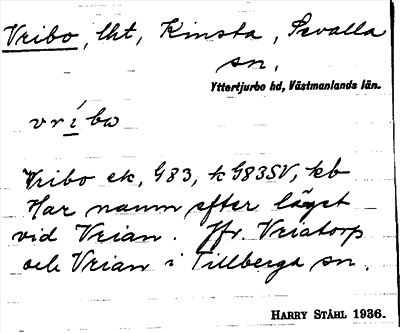 Vribo, lht, Kinsta, Sevalla
sn.
Yttertjurbo hd, Västmanlands län.
vríbω
Vribo ek, G83, k G83SV, kb
Har namn efter läget
vid Vrian. Jfr. Vriatorp
och Vrian i Tillberga sn.
HARRY STÅHL 1936.